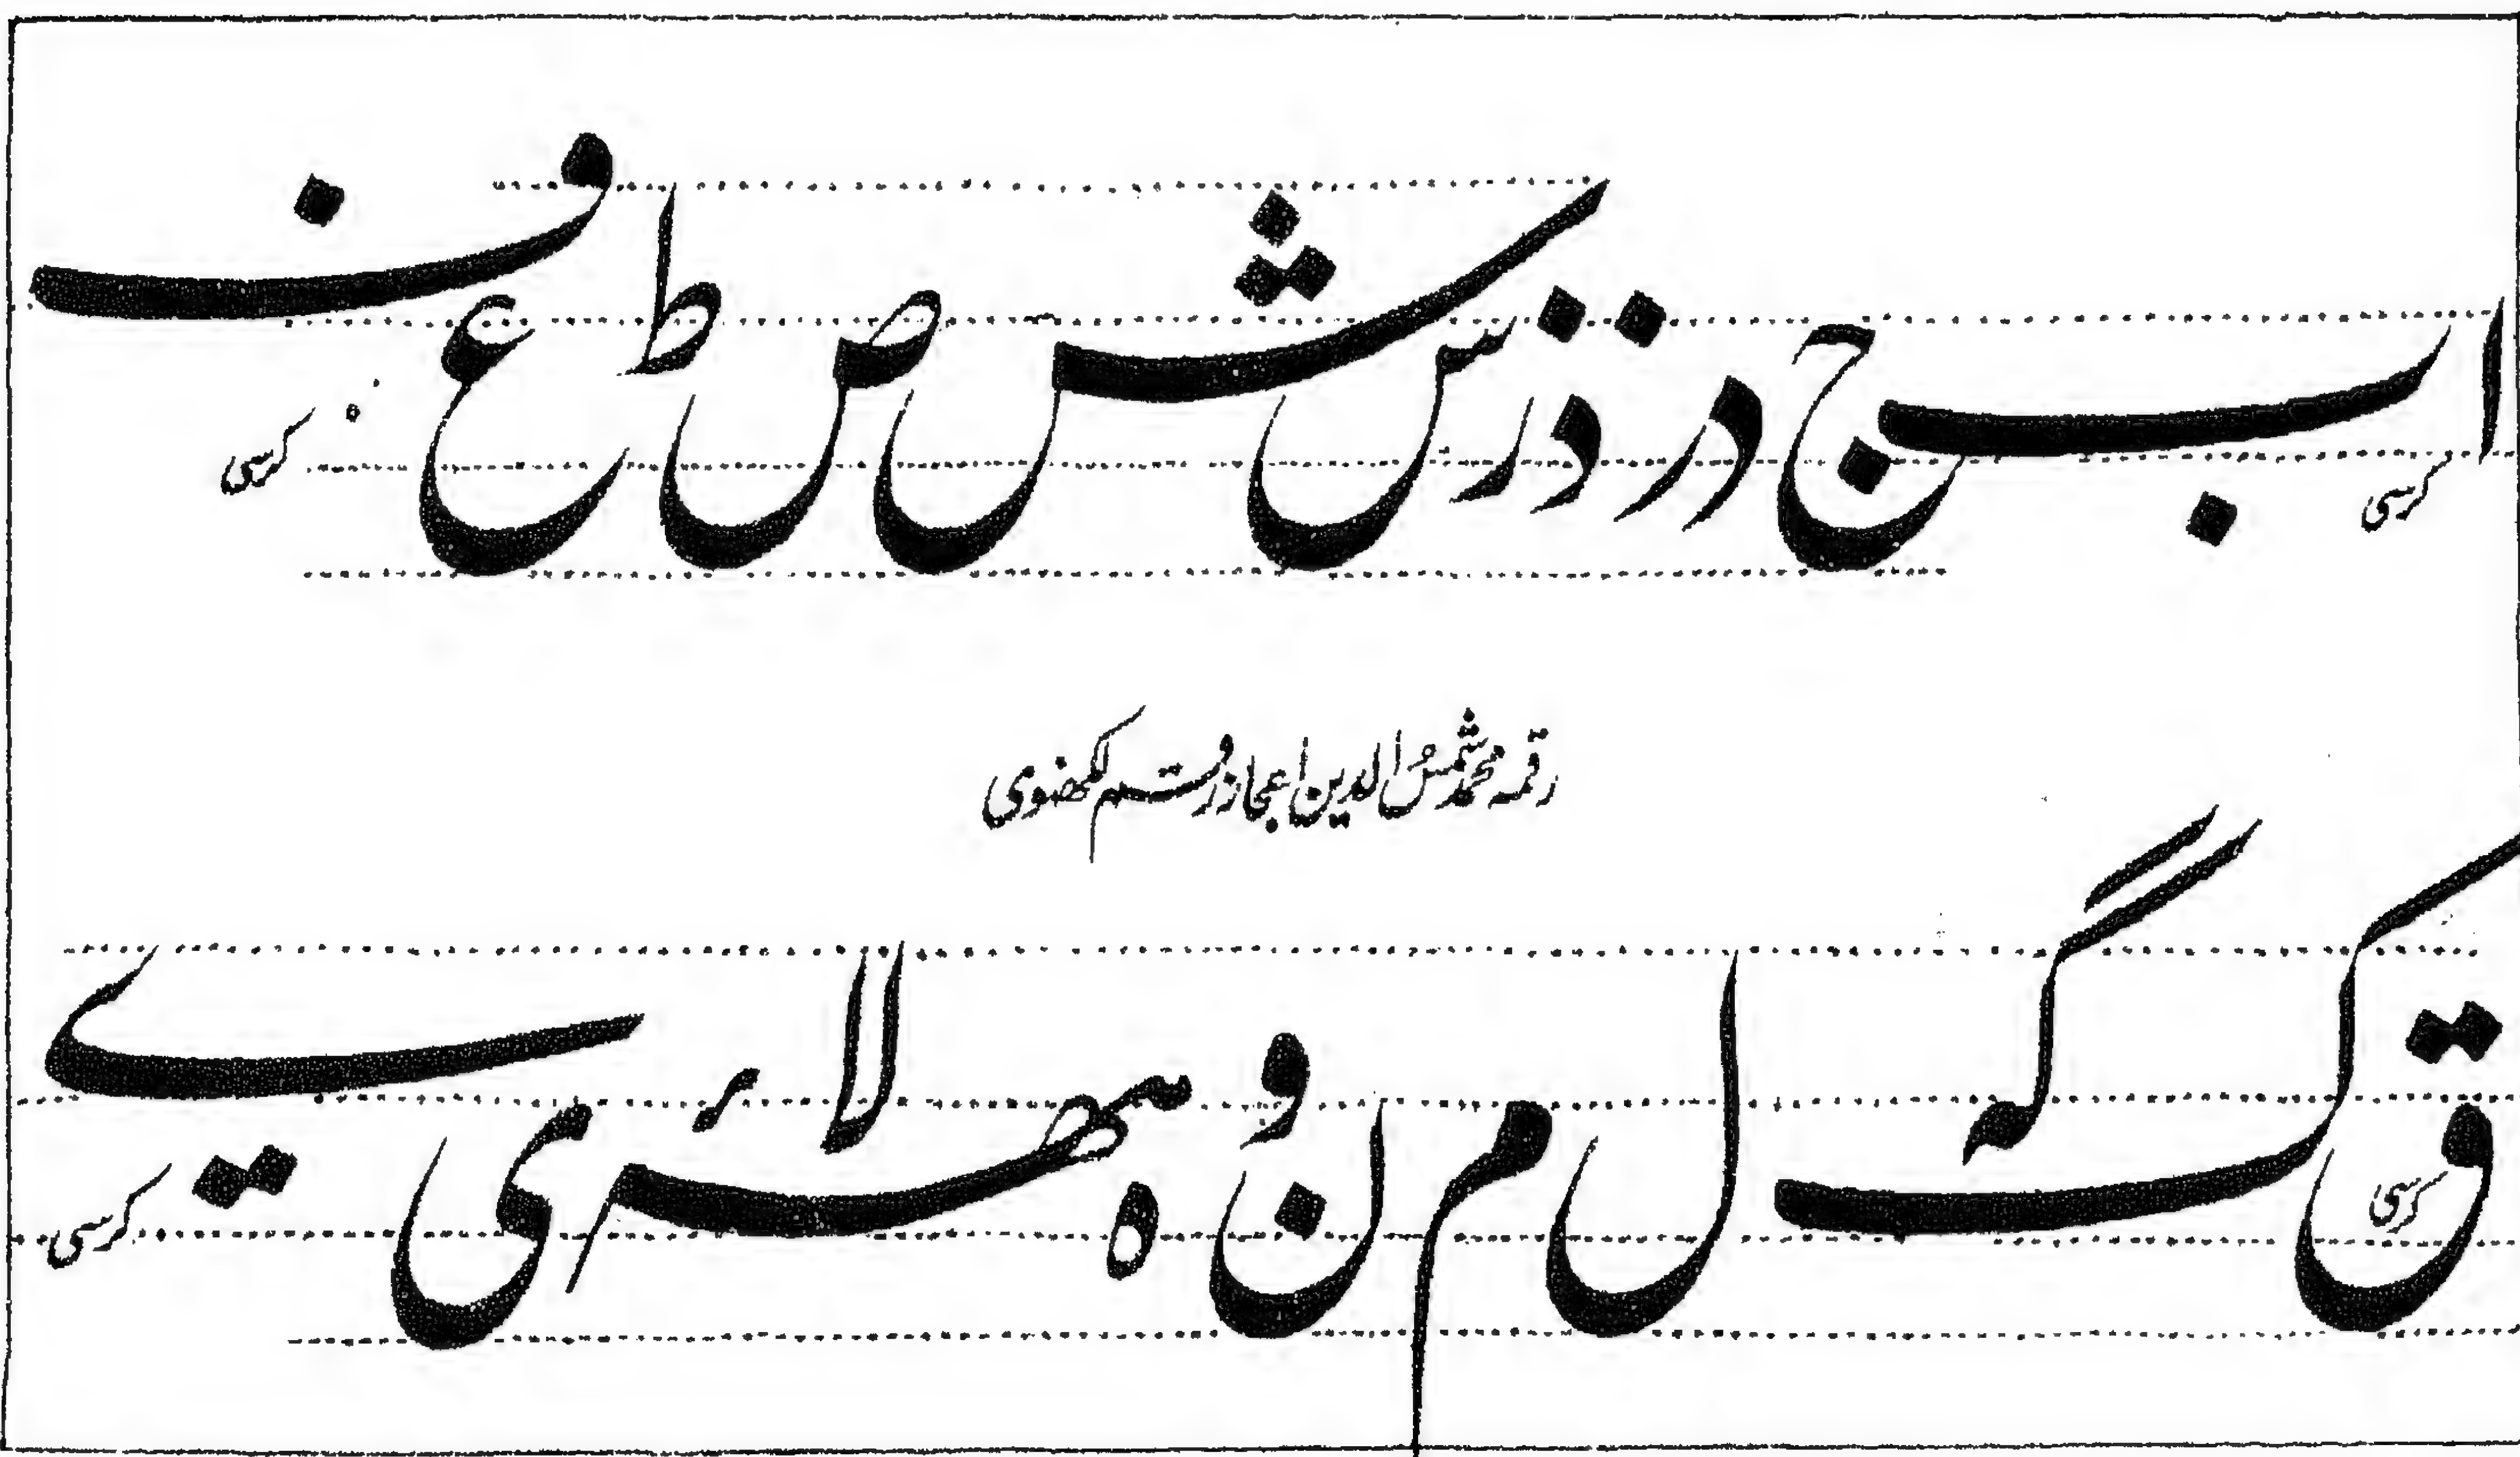 ا ب ج د ر ذ ز س ش ص ط ع ف
کرسی
کرسی
رقمه محمد شمس الدین اعجاز رقم لکھنوی
ق ک گ ل م ن و ہ ھ لا ء ی ے
کرسی
کرسی